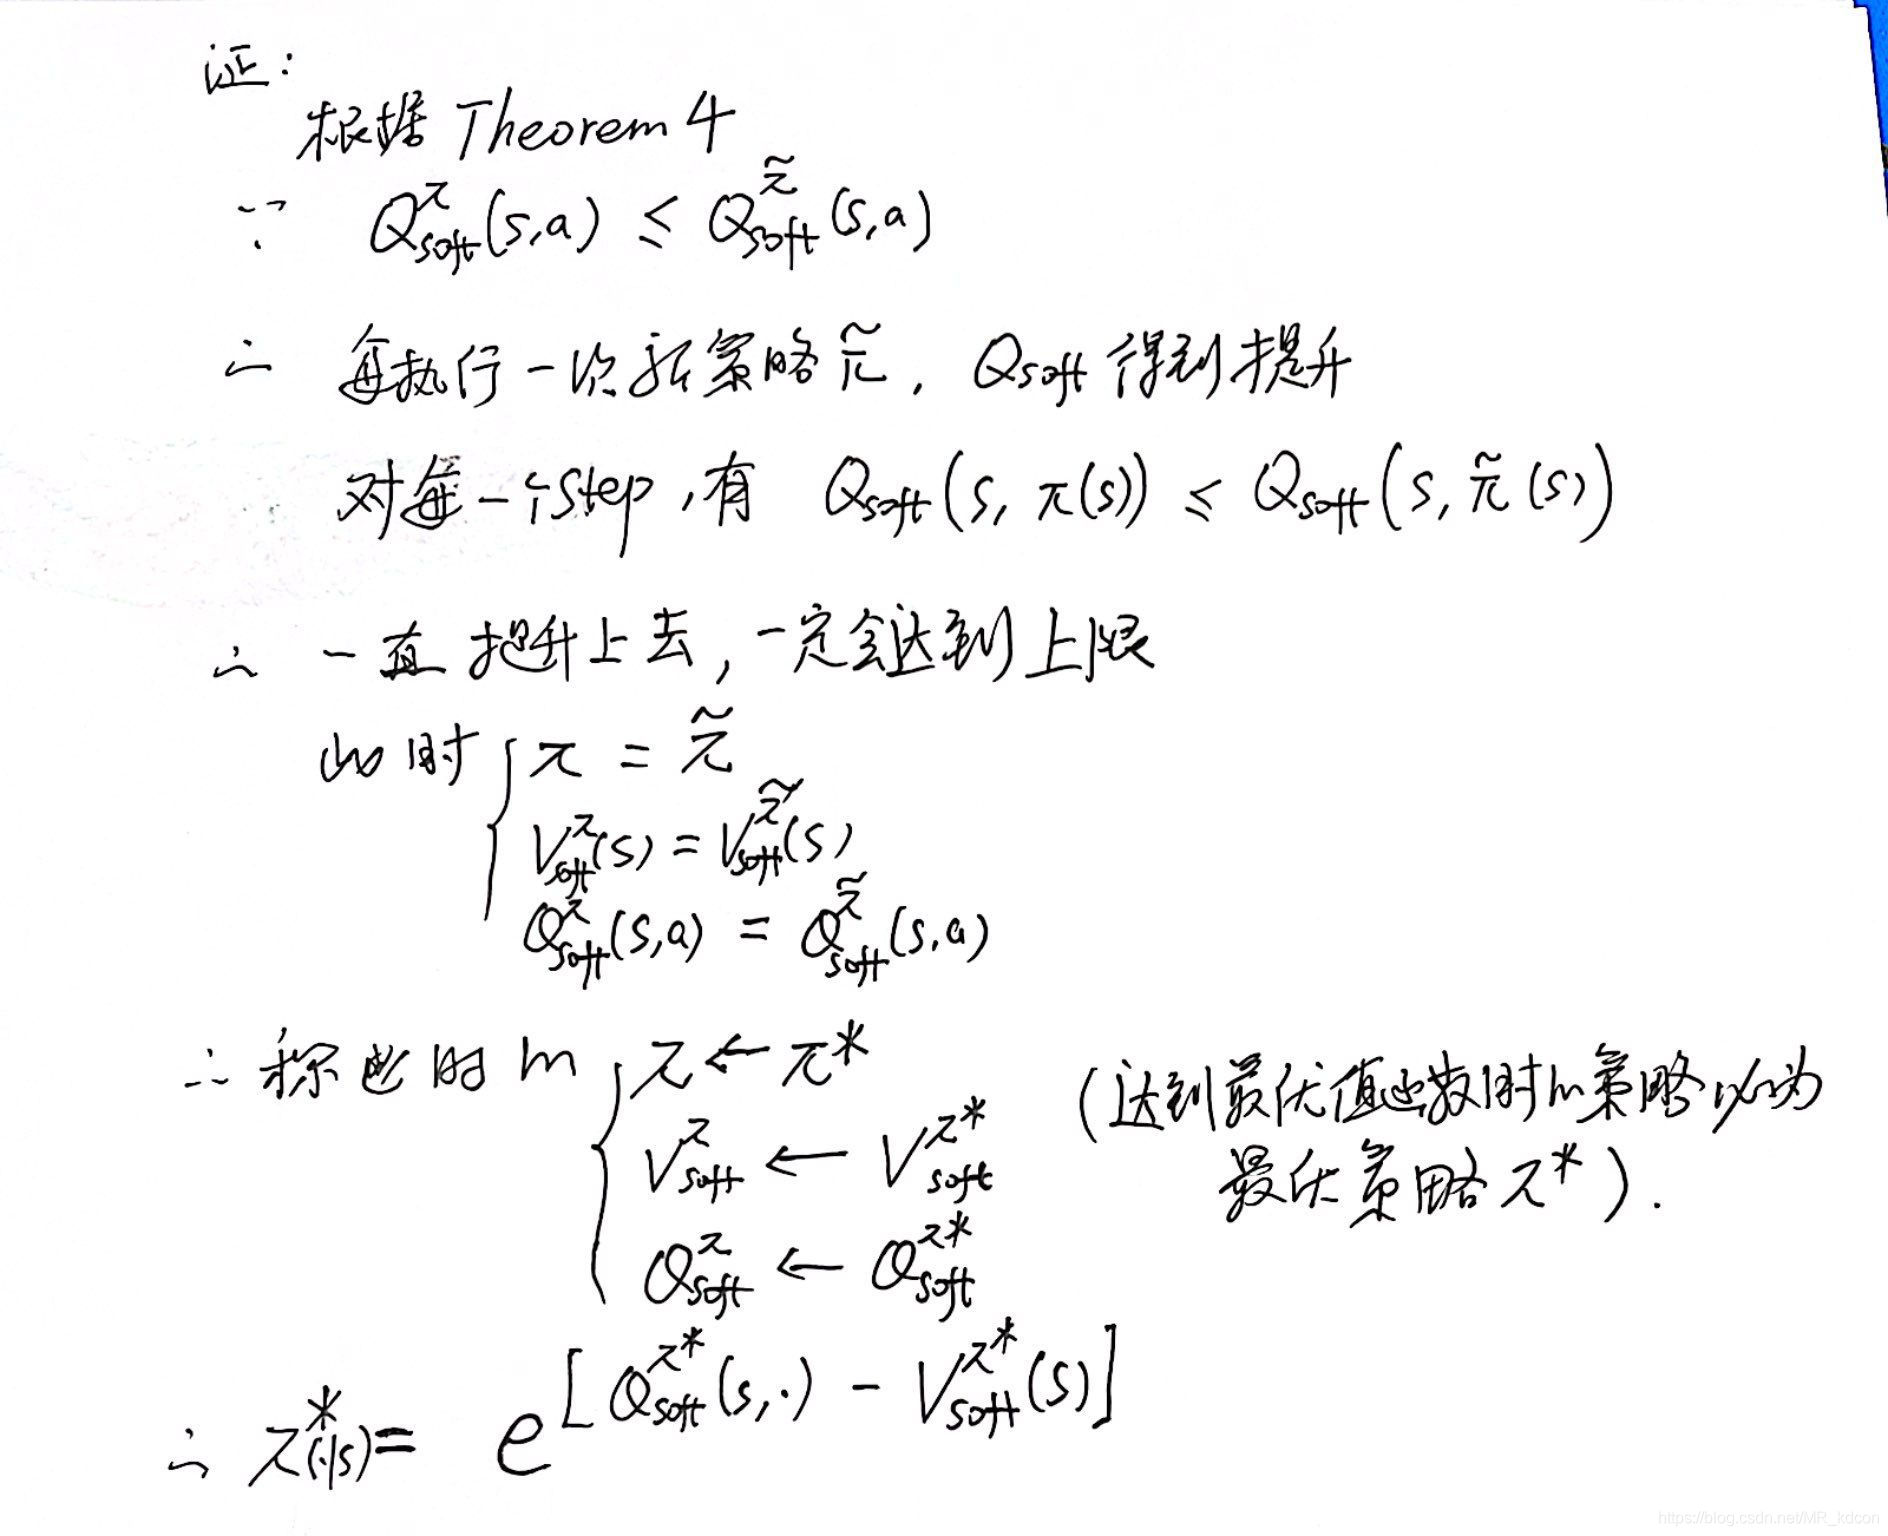 证:
根据 Theorem 4
∵ Q_soft^π(s,a) ≤ Q_soft^π̃(s,a)
∴ 每执行一次新策略 π̃, Q_soft 得到提升
对每一个step,有 Q_soft(s, π(s)) ≤ Q_soft(s, π̃(s))
∴ 一直提升上去,一定会达到上限
此时 { π = π̃
V_soft^π(s) = V_soft^π̃(s)
Q_soft^π(s,a) = Q_soft^π̃(s,a)
∴ 称此时的 { π ← π* (达到最优值函数时的策略必为
V_soft^π ← V_soft^π* 最优策略 π*).
Q_soft^π ← Q_soft^π*
∴ π*(·|s) = e^[Q_soft^π*(s,·) - V_soft^π*(s)]
https://blog.csdn.net/MR_kdcon